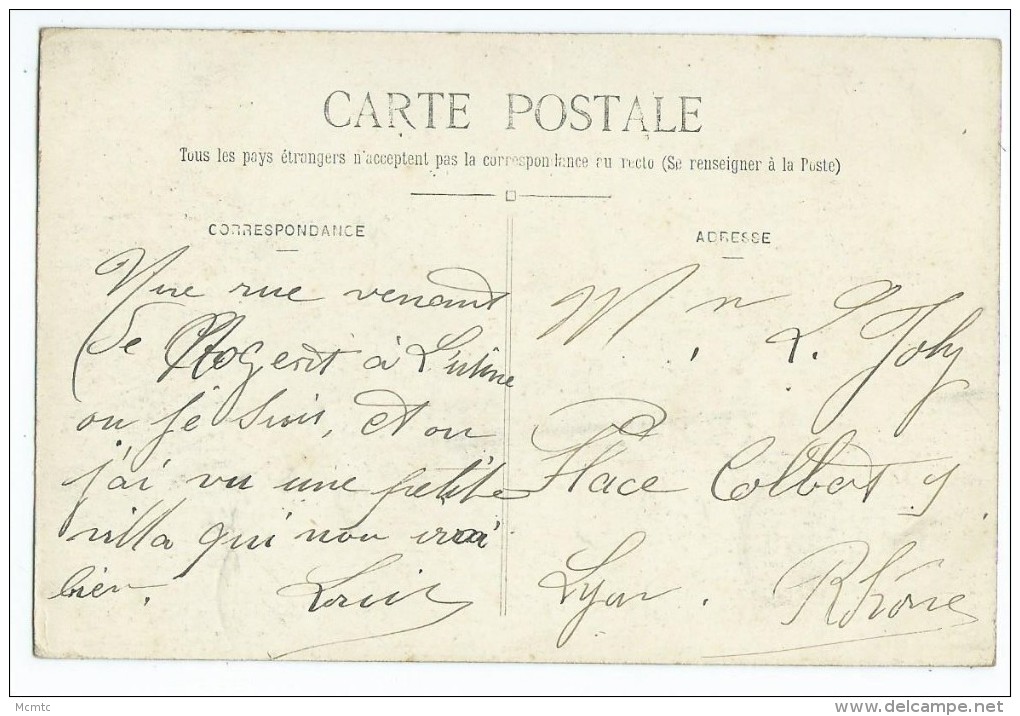 CARTE POSTALE
Tous les pays étrangers n'acceptent pas la correspondance au recto (Se renseigner à la Poste)
CORRESPONDANCE
ADRESSE
Une rue venant
de Nogent à L'usine
ou je suis, et ou
j'ai vu une petite
villa qui nou irai
bien. Louis
Mr L. Joly
Place Colbert 9
Lyon. Rhône
Mcmtc
delcampe.net